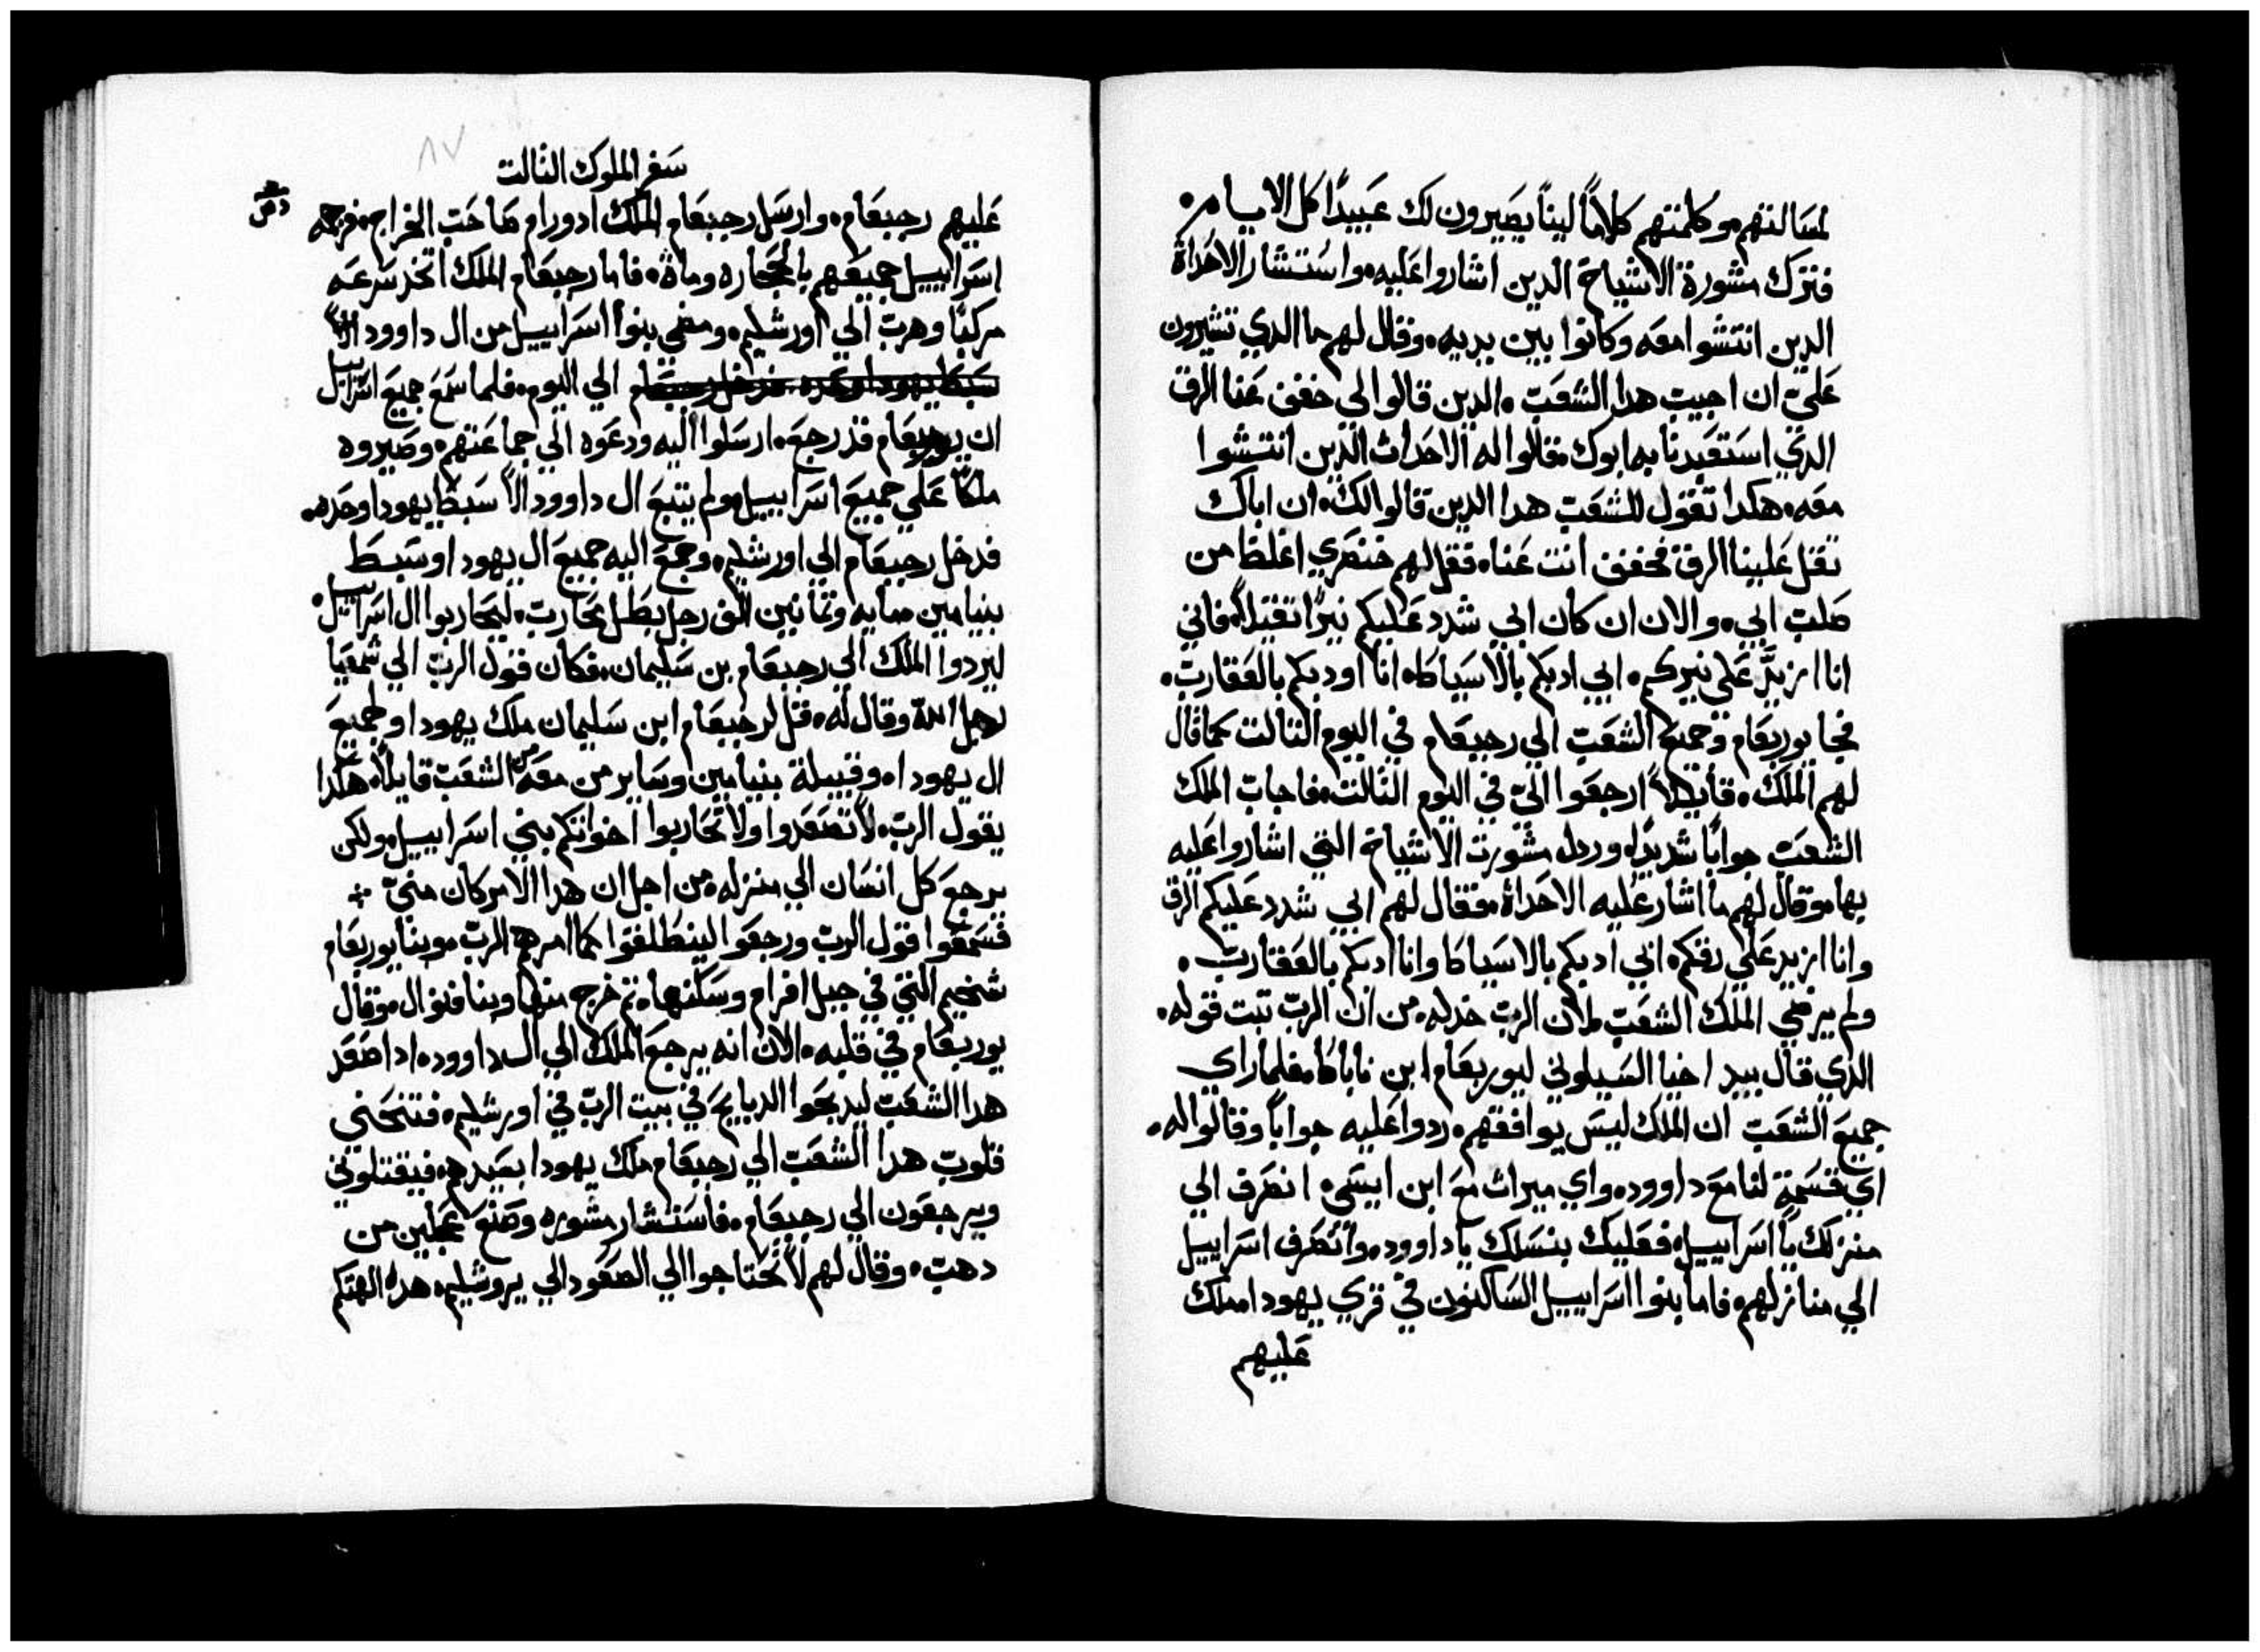 لمسالتهم وكلمتهم كلاماً ليناً يصيرون لك عبيداً كل الايام.
فترك مشورة الاشياخ الدين اشاروا عليه. واستشار الاحداث
الدين انتشوا معه وكانوا بين يديه. وقال لهم ما الدي تشيرون
عليّ ان اجيب هدا الشعب. الدين قالوا لي خفف عنا الرق
الدي استعبدنا به ابوك. فقالوا له الاحداث الدين انتشوا
معه. هكدا تقول للشعب هدا الدين قالوا لك. ان اباك
تقل علينا الرق فخفف انت عنا. فقل لهم خنصري اغلظ من
صلب ابي. والان ان كان ابي شدد عليكم نيراً تقيلاً. فاني
انا ازيد على نيركم. ابي ادبكم بالاسياط. انا اودبكم بالعقارب.
فجا يوربعام وجميع الشعب الي رحبعام في اليوم التالت كما قال
لهم الملك. قايلاً ارجعوا اليّ في اليوم التالت. فاجاب الملك
الشعب جواباً شديداً. وردل مشورت الاشياخ التي اشاروا عليه
بها. وقال لهم ما اشار عليه الاحداث. فقال لهم ابي شدد عليكم الرق
وانا ازيد علي رقكم. ابي ادبكم بالاسياط وانا ادبكم بالعقارب.
ولم يرضي الملك الشعب. لان الرب خدله. من ان الرب تبت قوله.
الدي قال بيد اخيا السيلوني ليوربعام ابن ناباط. فلما راي
جميع الشعب ان الملك ليس يوافقهم. ردوا عليه جواباً وقالوا له.
اي قسمة لنا مع داوود. واي ميرات مع ابن ايسي. انصرف الي
منزلك يا اسراييل. فعليك بنسلك يا داوود. وانصرف اسراييل
الي منازلهم. فاما بنوا اسراييل الساكنون في قري يهودا. ملك
عليهم
٨٧
سفر الملوك التالت
عليهم رحبعام. وارسل رحبعام الملك ادورام صاحب الخراج. فرجمه
اسراييل جميعهم بالحجاره ومات. فاما رحبعام الملك اتخد سرعه
مركباً وهرب الي اورشليم. ومضي بنوا اسراييل من ال داوود
الي اليوم. فلما سمع جميع اسراييل
ان يوربعام قد رجع. ارسلوا اليه ودعوه الي جماعتهم. وصيروه
ملكاً علي جميع اسراييل. ولم يتبع ال داوود الاّ سبط يهودا وحده.
فدخل رحبعام الي اورشليم. وجمع اليه جميع ال يهودا وسبط
بنيامين مايه وتمانين الف رجل بطل محارب. ليحاربوا ال اسراييل.
ليردوا الملك الي رحبعام بن سليمان. فكان قول الرب الي شمعيا
رجل الله وقال له. قل لرحبعام ابن سليمان ملك يهودا ولجميع
ال يهودا. وقبيلة بنيامين وساير من معه من الشعب قايلاً. هكدا
يقول الرب. لا تصعدوا ولا تحاربوا اخوانكم بني اسراييل. ولكن
يرجع كل انسان الي منزله. من اجل ان هدا الامر كان منيّ
فسمعوا قول الرب ورجعوا لينطلقوا كما امرهم الرب. وبنا يوربعام
شخيم التي في جبل افرام وسكنها. تم خرج منها وبنا فنوال. وقال
يوربعام في قلبه. الان انه يرجع الملك الي ال داوود. ادا صعد
هدا الشعب ليدبحوا الدبايح في بيت الرب في اورشليم. فتنحني
قلوب هدا الشعب الي رحبعام ملك يهودا بصيدهم. فيقتلوني
ويرجعون الي رحبعام. فاستشار مشوره وصنع عجلين من
دهب. وقال لهم لا تحتاجوا الي الصعود الي يروشليم. هده الهتكم